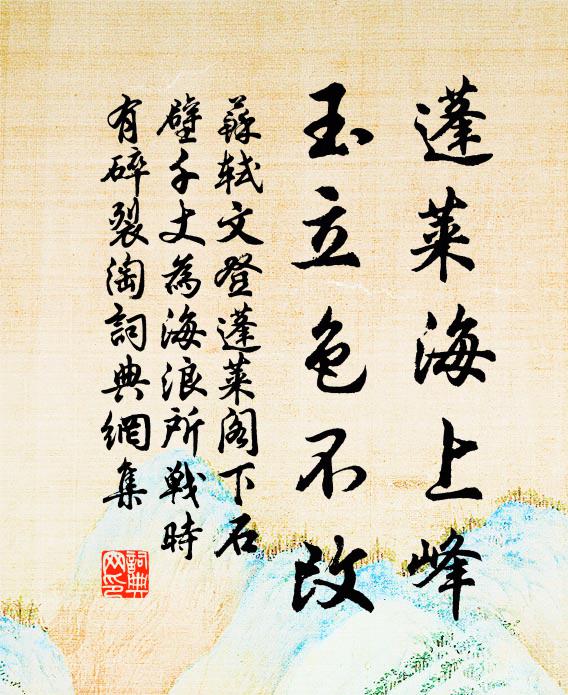 蓬萊海上峰
玉立色不改
蘇軾文登蓬萊閣下石
壁千丈為海浪所戰時
有碎裂淘詞典網集
詞典
网印